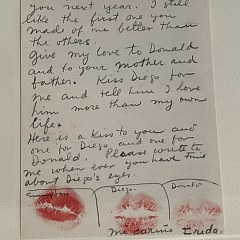 you next year. I still
like the first one you
made of me better than
the others.
Give my love to Donald
and to your mother and
father. Kiss Diego for
me and tell him I love
him more than my own
life.
Here is a kiss to you and
one for Diego and one for
Donald. Please write to
me when ever you have time
about Diego's eyes.
Diego. Donald
Mi cariño Frida.